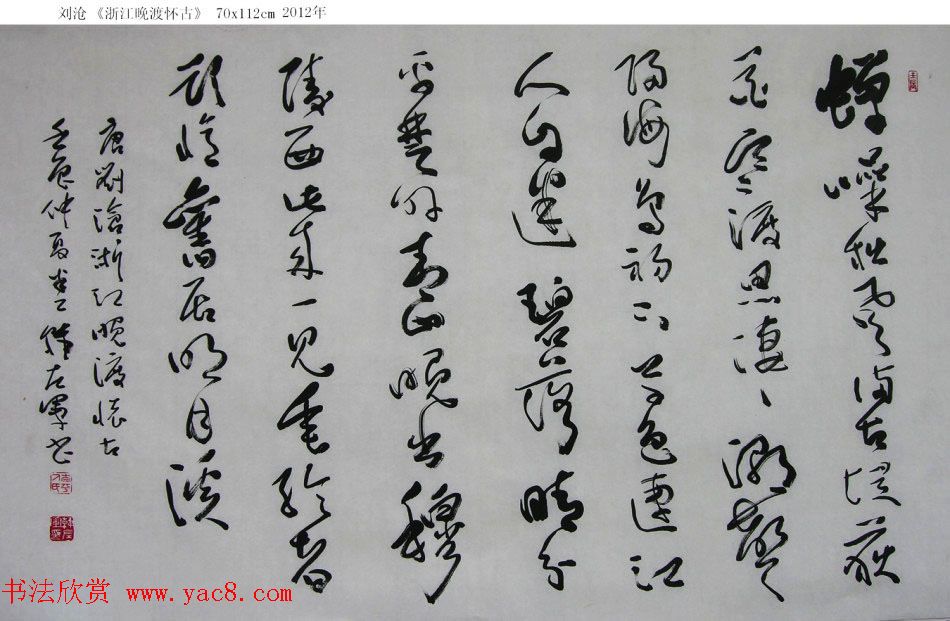 刘沧 《浙江晚渡怀古》 70x112cm 2012年
蟬噪秋風滿古堤荻
花寒渡思萋々潮聲
歸海鳥初下草色連江
人自迷碧落晴分
平楚外青山晚出穆
陵西此来一見垂綸者
却憶舊居明月溪
唐劉滄浙江晚渡懷古
壬辰仲夏韓左軍书
书法欣赏 www.yac8.com